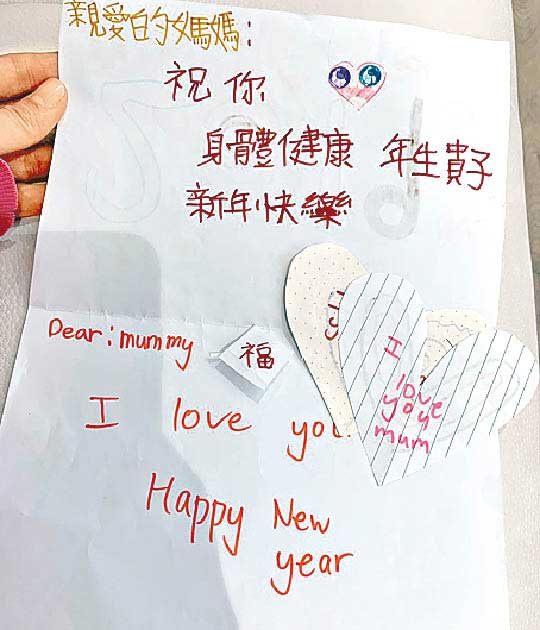 親愛的媽媽：
祝你
身體健康 年生貴子
新年快樂
Dear: mummy
福
I love you
Happy New
year
I
love
you
mum